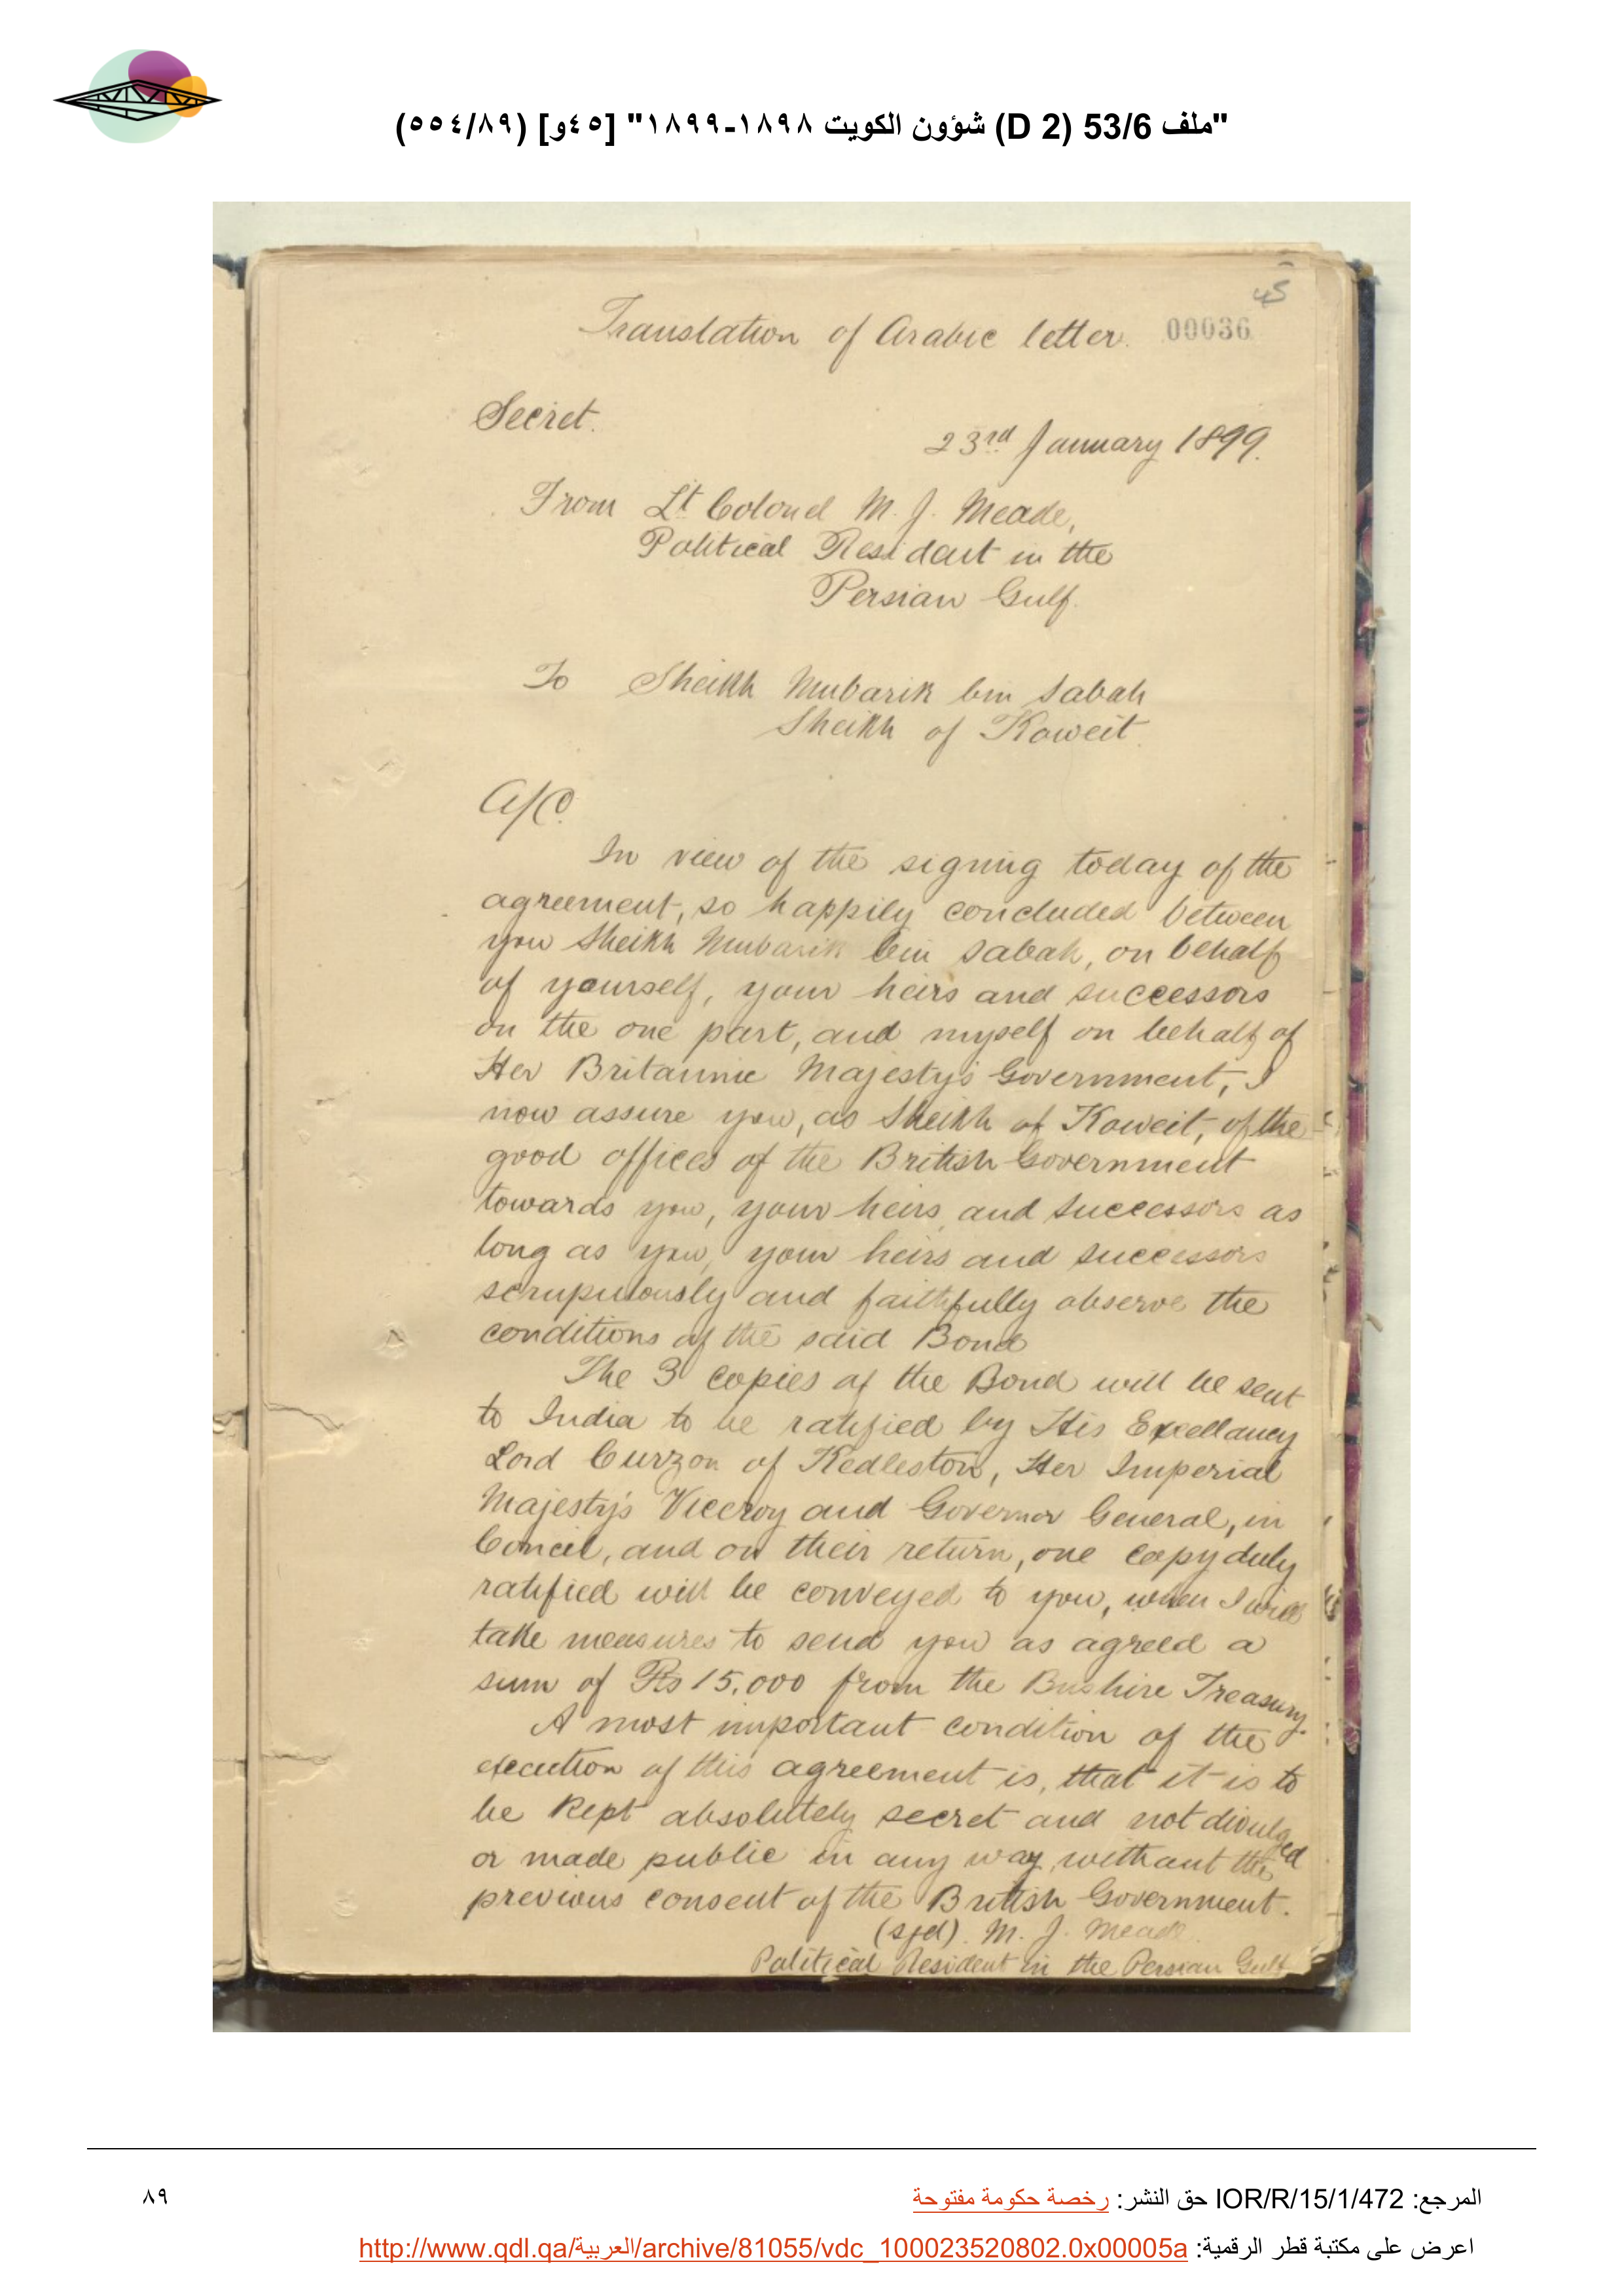 "ملف 53/6 (D 2) شؤون الكويت ١٨٩٨-١٨٩٩" [٤٥و] (٥٥٤/٨٩)
45
Translation of Arabic letter. 00036
Secret.
23rd January 1899.
From Lt Colonel M. J. Meade,
Political Resident in the
Persian Gulf.
To Sheikh Mubarik bin Sabah
Sheikh of Koweit.
A/C.
In view of the signing today of the
agreement, so happily concluded between
you Sheikh Mubarik bin Sabah, on behalf
of yourself, your heirs and successors
on the one part, and myself on behalf of
Her Britannic Majesty's Government, I
now assure you, as Sheikh of Koweit, of the
good offices of the British Government
towards you, your heirs and successors as
long as you, your heirs and successors
scrupulously and faithfully observe the
conditions of the said Bond
The 3 copies of the Bond will be sent
to India to be ratified by His Excellancy
Lord Curzon of Kedleston, Her Imperial
Majesty's Viceroy and Governor General, in
Council, and on their return, one copy duly
ratified will be conveyed to you, when I will
take measures to send you as agreed a
sum of Rs 15,000 from the Bushire Treasury.
A most important condition of the
execution of this agreement is, that it is to
be kept absolutely secret and not divulged
or made public in any way without the
previous consent of the British Government.
(sgd). M. J. Meade.
Political Resident in the Persian Gulf
المرجع: IOR/R/15/1/472 حق النشر: رخصة حكومة مفتوحة
٨٩
اعرض على مكتبة قطر الرقمية: http://www.qdl.qa/العربية/archive/81055/vdc_100023520802.0x00005a